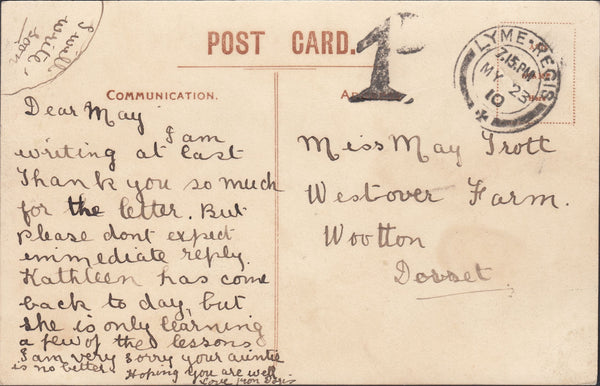 I will
write
soon
POST CARD.
1D
LYME-REGIS
7.15.PM
MY 23
10
COMMUNICATION.
Dear May
I am
writing at last
Thank you so much
for the letter. But
please dont expect
immediate reply.
Kathleen has come
back to day, but
she is only learning
a few of the lessons
I am very sorry your auntie
is no better. Hoping you are well
Love from Doris
Miss May Trott
Westover Farm.
Wootton
Dorset